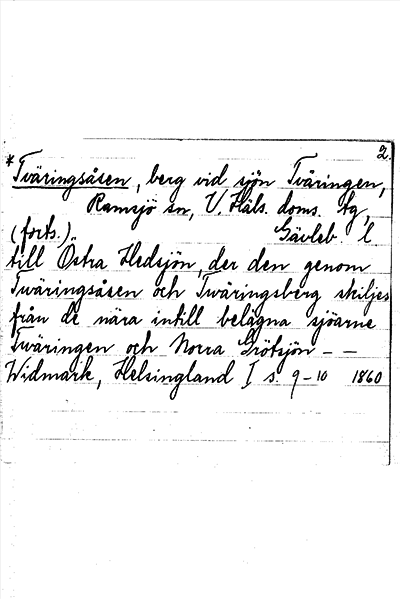 2.
*Tväringsåsen, berg vid sjön Tväringen,
Ramsjö sn, V. Häls. doms. tg,
(forts.) Gävleb. l
till Östra Hedsjön, der den genom
Twäringsåsen och Twäringsberg skiljes
från de nära intill belägna sjöarne
Twäringen och Norra Grötsjön – –
Widmark, Helsingland I s. 9–10 1860